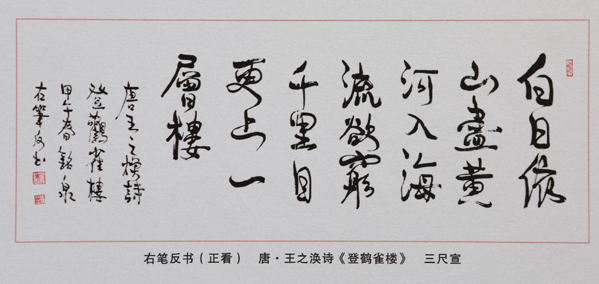 白日依
山盡黄
河入海
流欲窮
千里目
更上一
層樓
唐王之渙詩
登鸛雀樓
甲午春銘泉
右筆反书
右笔反书（正看） 唐·王之涣诗《登鹤雀楼》 三尺宣